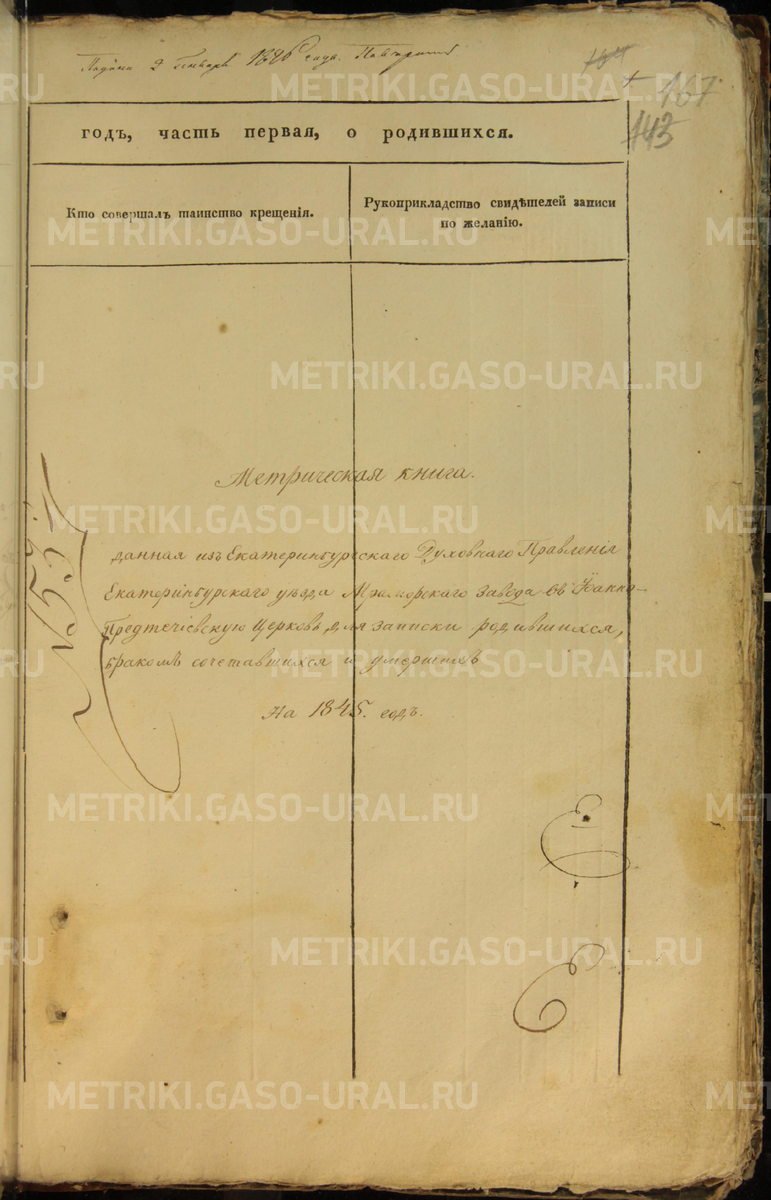 1846 года.
167
143
годъ, часть первая, о родившихся.
Кто совершалъ таинство крещенія.
Рукоприкладство свидѣтелей записи
по желанію.
Метрическая книга.
данная изъ Екатеринбургскаго Духовнаго Правленія
Екатеринбургскаго уѣзда Мраморскаго завода въ Іоанно-
Предтечіевскую Церковь для записки родившихся,
бракомъ сочетавшихся и умершихъ
На 1845. годъ.
METRIKI.GASO-URAL.RU